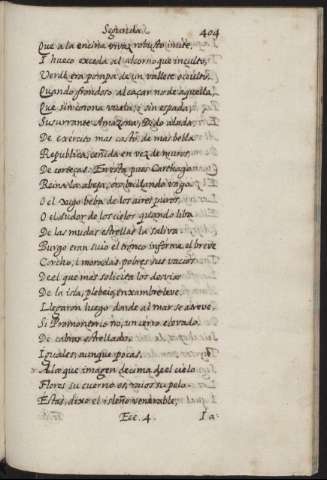 Segunda. 404
Que a la encina vivaz robusto imite,
I hueco exceda al alcornoque inculto,
Verde era pompa de un vallete oculto,
Quando frondoso alcaçar no de aquella,
Que sin corona vuela, i sin espada,
Susurrante Amazona, Dido alada,
De exército mas casto, de mas bella
Republica, ceñida en vez de muros
De cortezas: En esta pues Carthago
Reina la abeja, oro brillando vago,
O el xugo beba de los aires puros,
O el sudor de los cielos quando liba
De las mudas estrellas la saliva
Burgo eran suio el tronco informe, el breve
Corcho, i moradas pobres sus vacios
Del que mas solicita los desvios
De la isla, plebeio enxambre leve.
Llegaron luego donde al mar se atreve,
Si Promontorio no, un cerro elevado
De cabras estrellado,
Iguales, aunque pocas,
A la que imagen decima del cielo
Flores su cuerno es, raios su pelo.
Estas, dixo el isleño venerable,
Eee. 4. I a